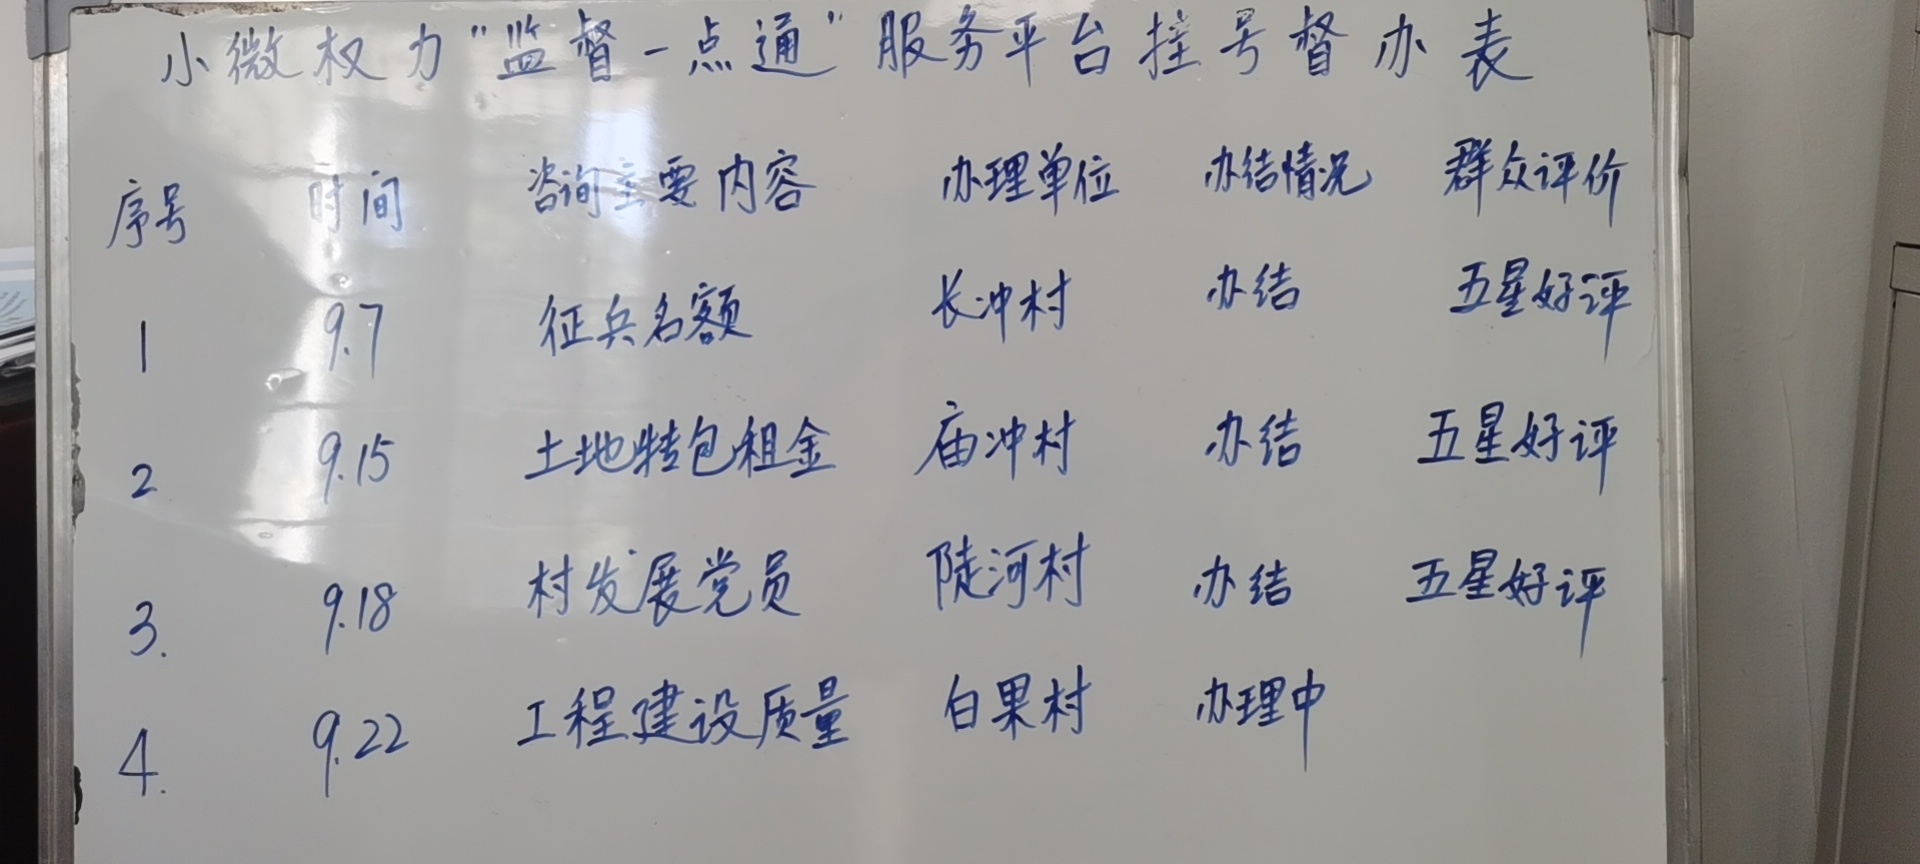 小微权力“监督一点通”服务平台挂号督办表
序号 时间 咨询主要内容 办理单位 办结情况 群众评价
1 9.7 征兵名额 长冲村 办结 五星好评
2 9.15 土地转包租金 庙冲村 办结 五星好评
3. 9.18 村发展党员 陡河村 办结 五星好评
4. 9.22 工程建设质量 白果村 办理中